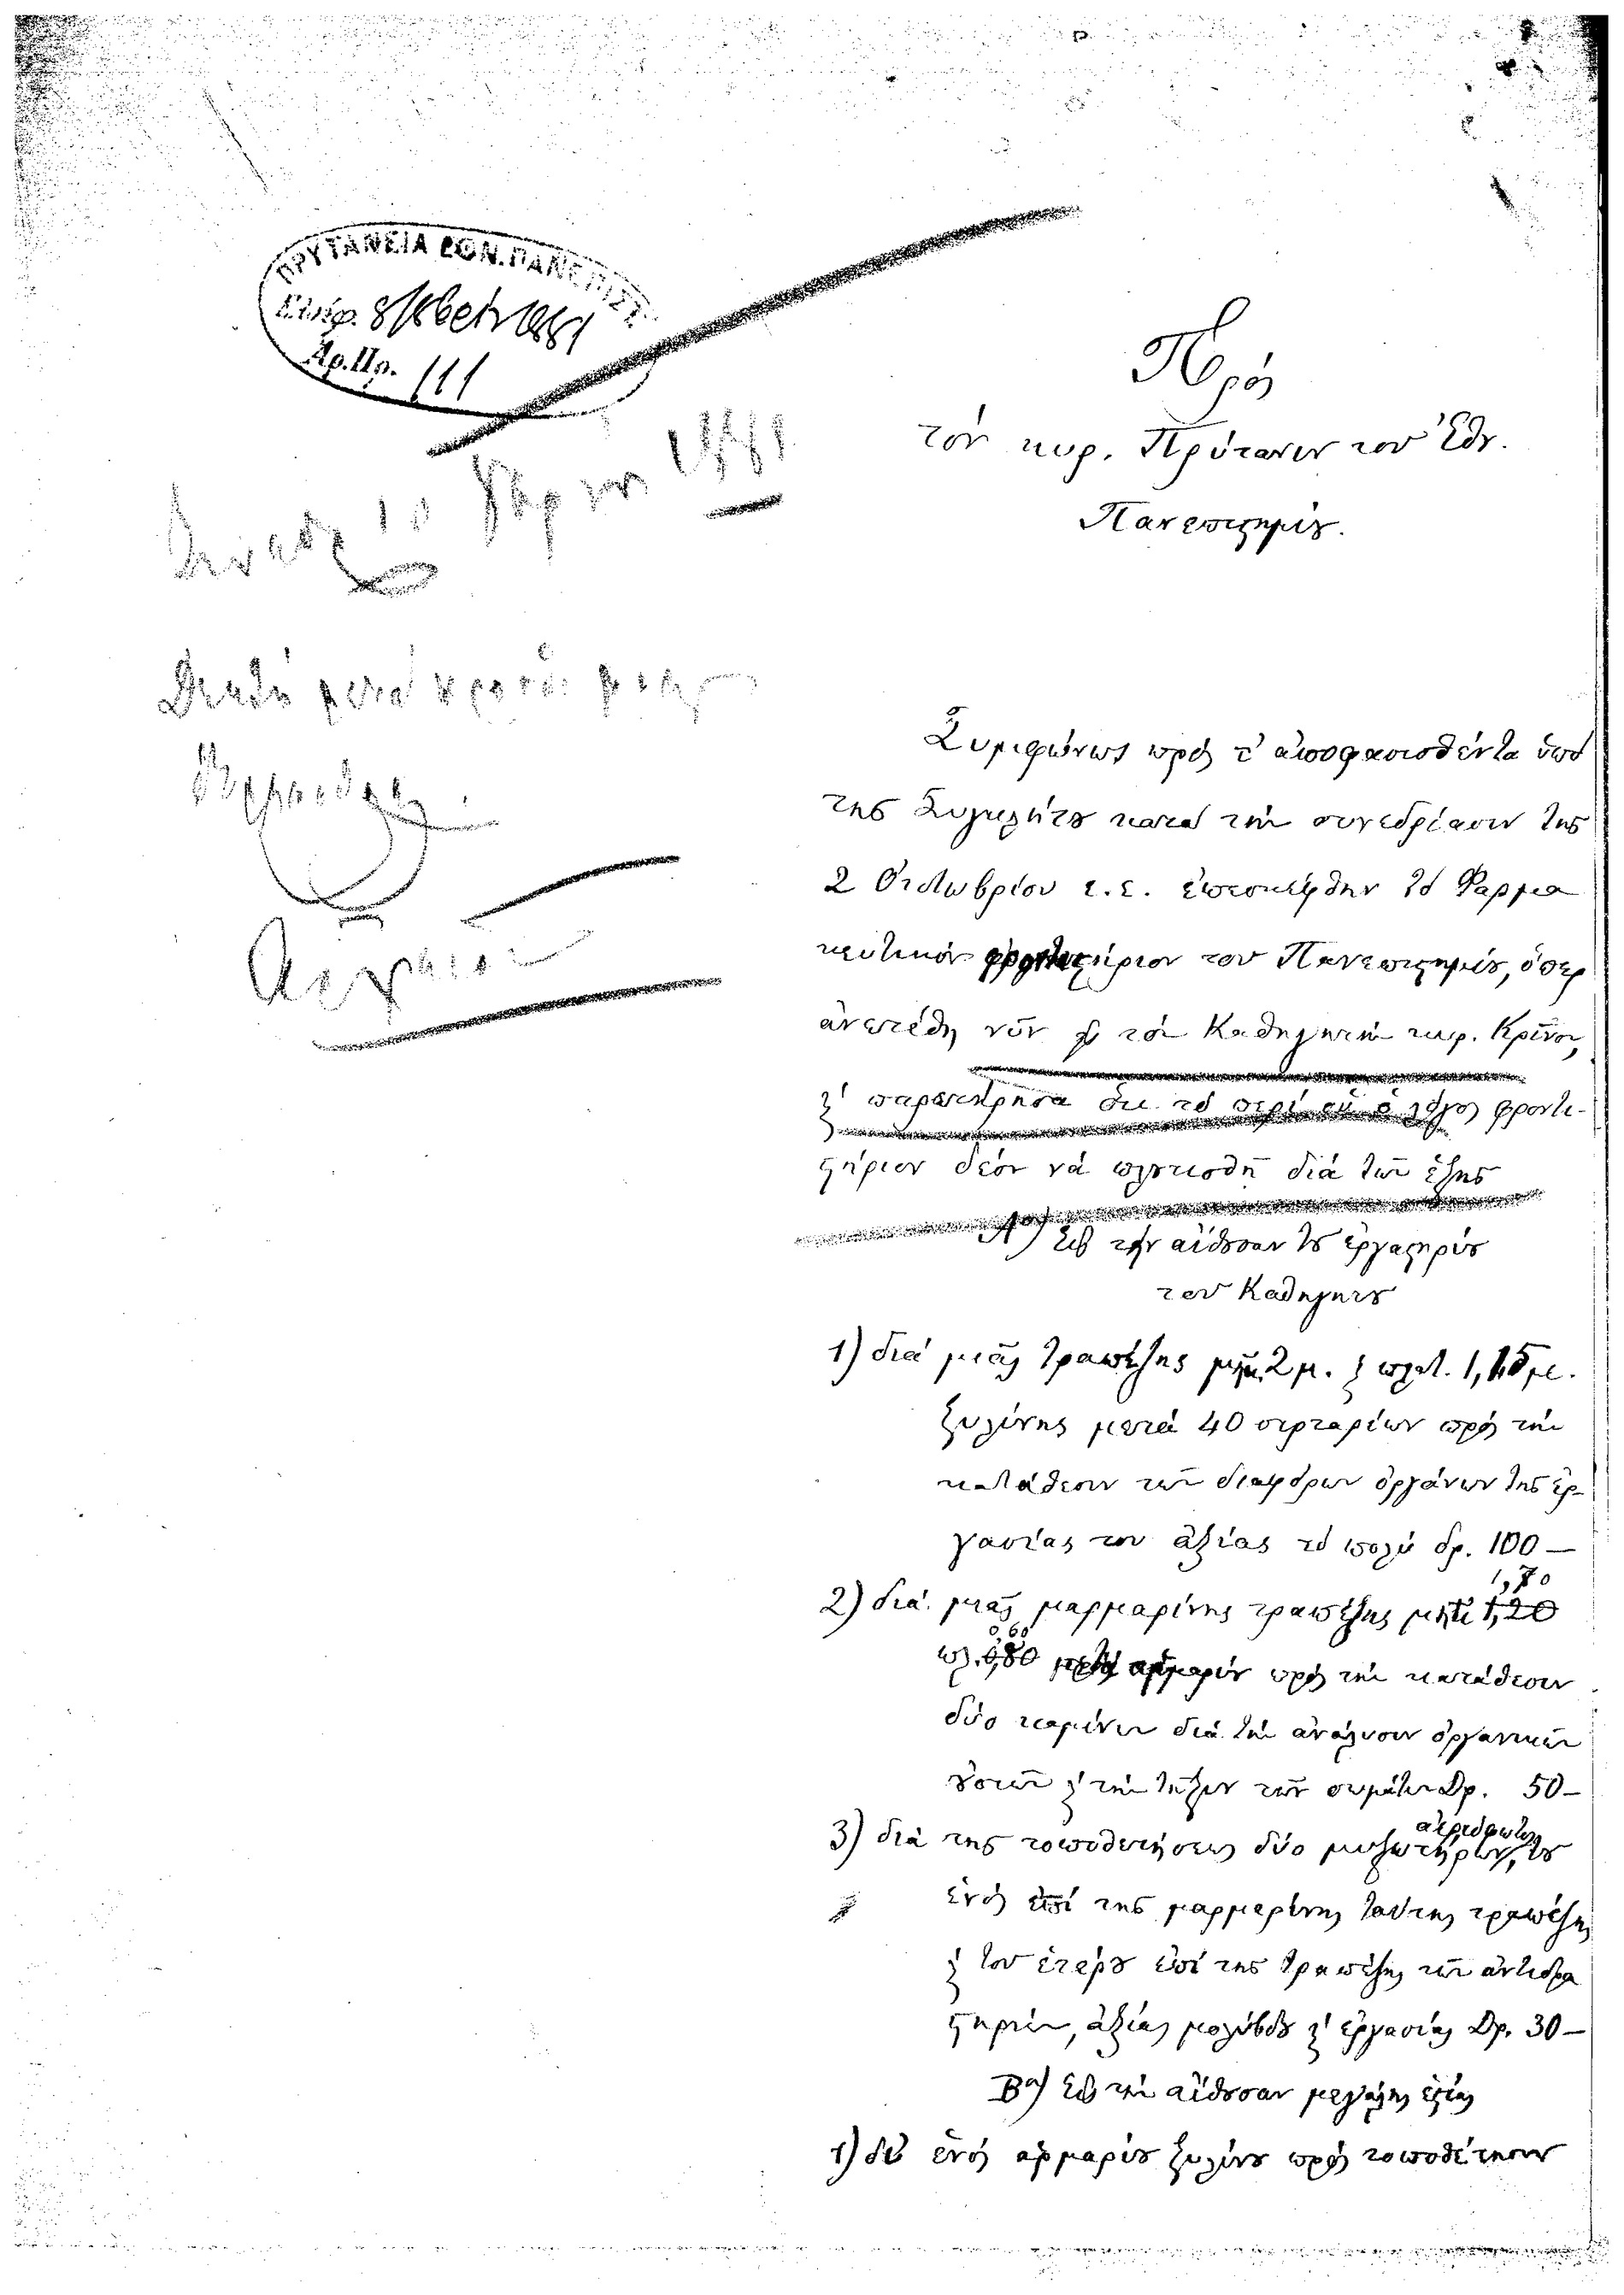 ΠΡΥΤΑΝΕΙΑ ΕΘΝ. ΠΑΝΕΠΙΣΤ.
Εἰσήχ. 8/ 1881
Ἀρ. Πρ. 111
10 1881
μετὰ
Ἀρχεῖον
Πρὸς
τὸν κυρ. Πρύτανιν τοῦ Ἐθν.
Πανεπιστημίου.
Συμφώνως πρὸς τ' ἀποφασισθέντα ὑπὸ
τῆς Συγκλήτου κατὰ τὴν συνεδρίασιν τῆς
2 Ὀκτωβρίου ἐ.ἔ. ἐπεσκέφθην τὸ Φαρμα
κευτικὸν φροντιστήριον τοῦ Πανεπιστημίου, ὅπερ
ἀνετέθη νῦν εἰς τὸν Καθηγητὴν κυρ. Κρίνον,
καὶ παρετήρησα ὅτι τὸ περὶ οὗ ὁ λόγος φροντι-
στήριον δέον νὰ πλουτισθῇ διὰ τῶν ἑξῆς
Αον) Εἰς τὴν αἴθουσαν τοῦ ἐργαστηρίου
τοῦ Καθηγητοῦ
1) διὰ μιᾶς τραπέζης μήκ. 2 μ. καὶ πλάτ. 1,15 μ.
ξυλίνης μετὰ 40 συρταρίων πρὸς τὴν
κατάθεσιν τῶν διαφόρων ὀργάνων τῆς ἐρ-
γασίας του ἀξίας τὸ πολὺ δρ. 100—
1,70
2) διὰ μιᾶς μαρμαρίνης τραπέζης μήκ. 1,20
0,60
πλ. 0,80 μετὰ ἁρμαρίου πρὸς τὴν κατάθεσιν
δύο καμίνων διὰ τὴν ἀνάλυσιν ὀργανικῶν
οὐσιῶν καὶ τὴν τῆξιν τῶν σωμάτων Δρ. 50—
ἀεριοφώτος
3) διὰ τῆς τοποθετήσεως δύο μυζωτήρων, τοῦ
ἑνὸς ἐπὶ τῆς μαρμαρίνης ταύτης τραπέζης
καὶ τοῦ ἑτέρου ἐπὶ τῆς τραπέζης τῶν ἀντιδρα
στηρίων, ἀξίας μολύβδου καὶ ἐργασίας Δρ. 30—
Βον) Εἰς τὴν αἴθουσαν μεγάλης ἑστίας
1) δι' ἑνὸς ἁρμαρίου ξυλίνου πρὸς τοποθέτησιν